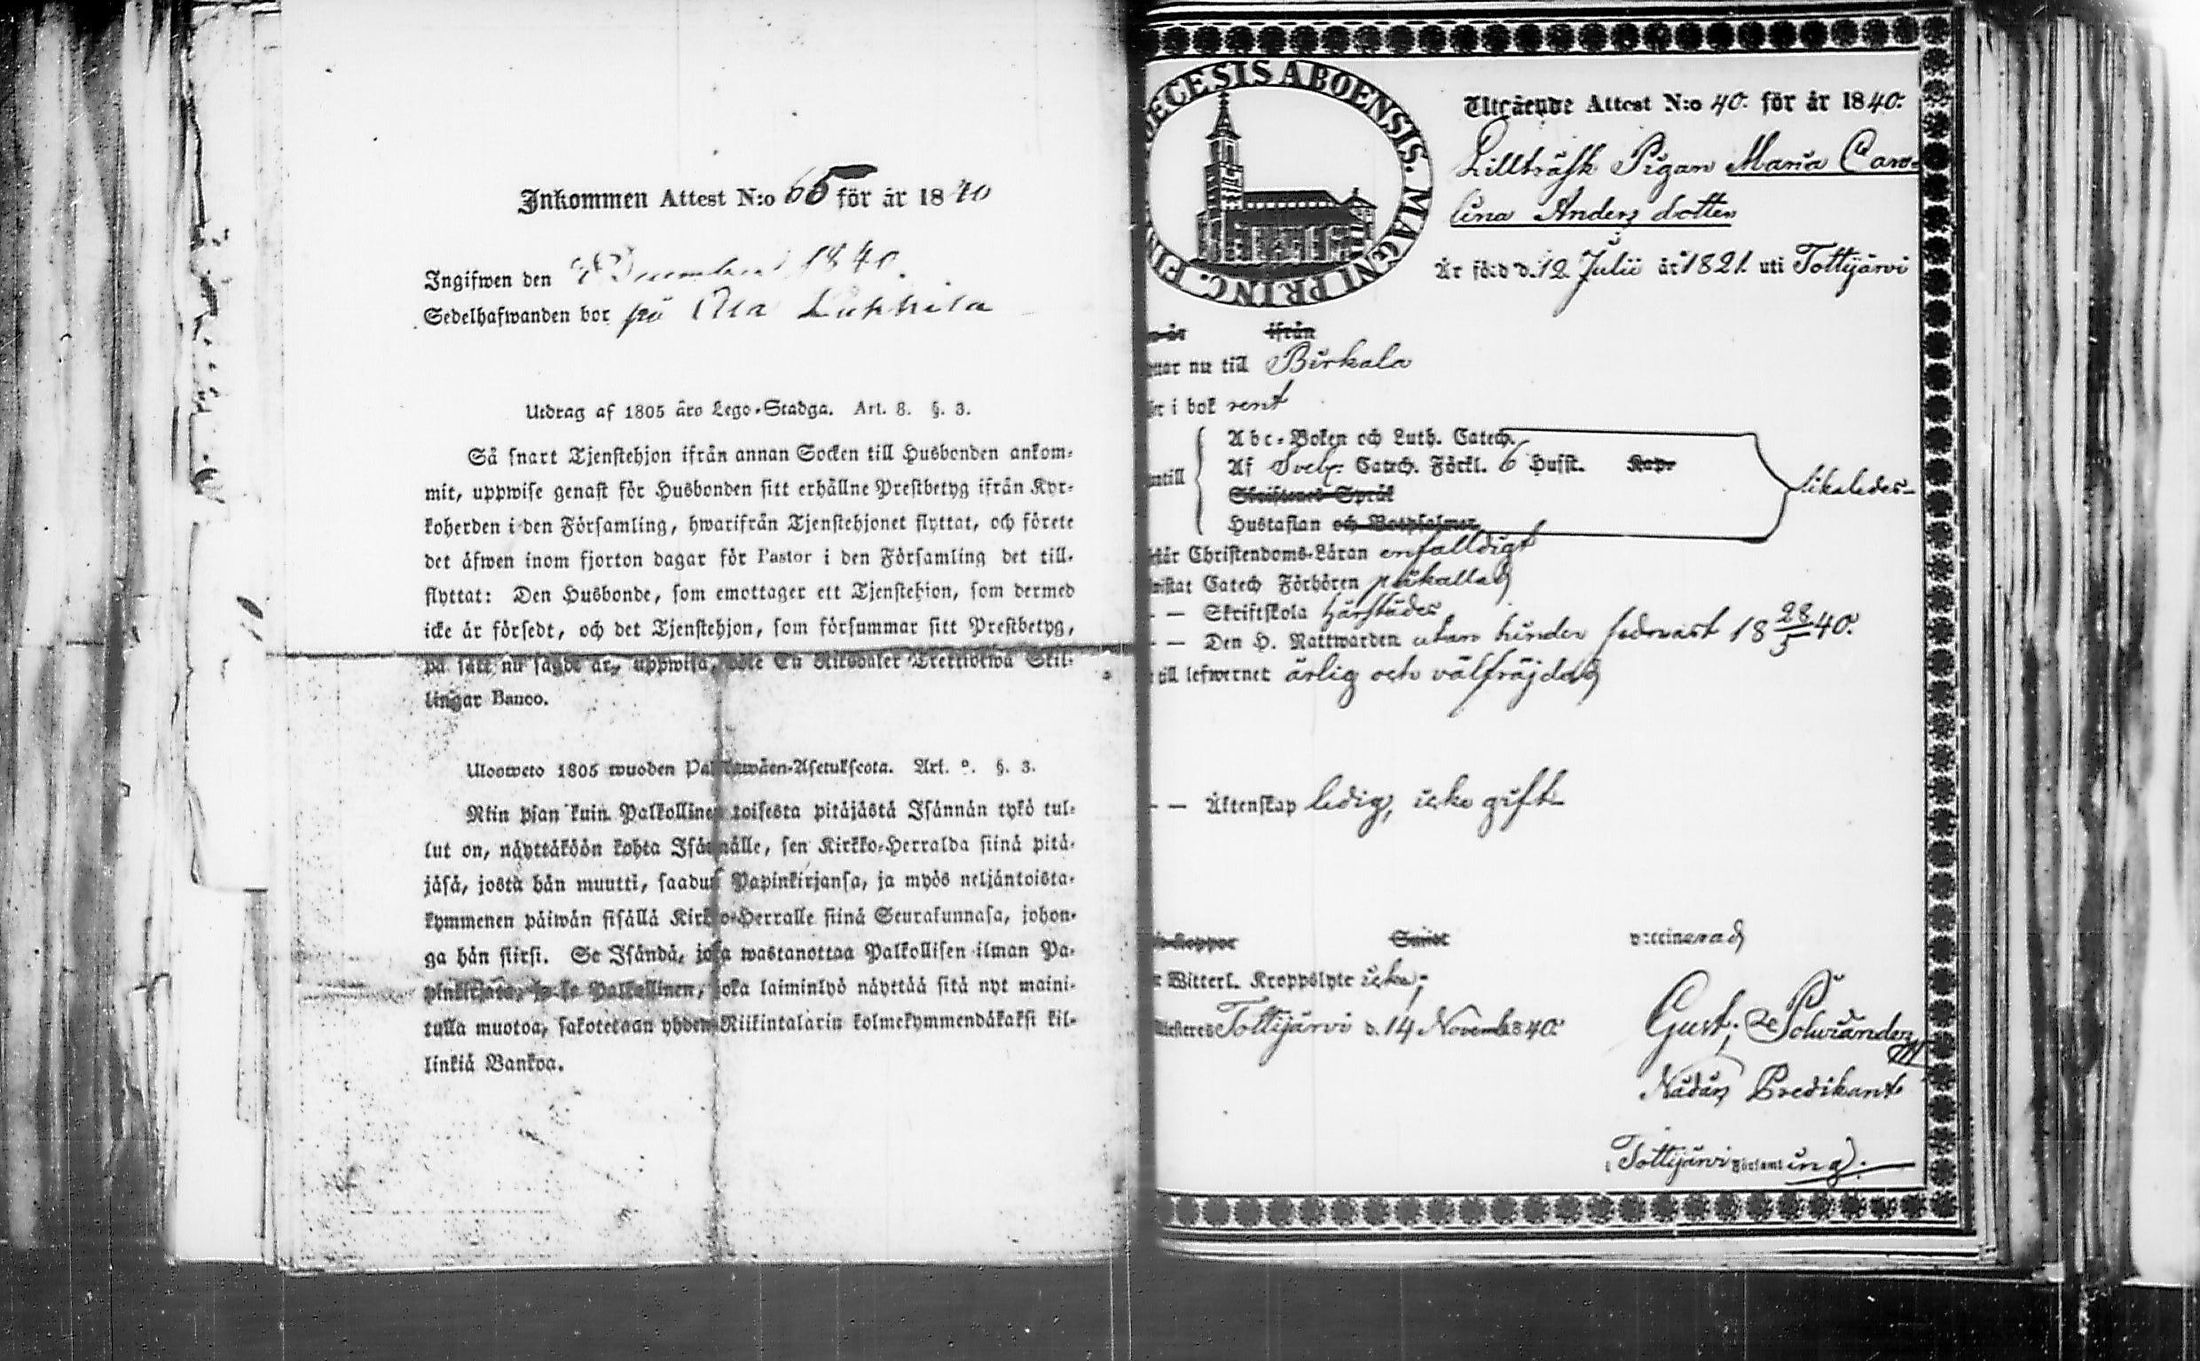 Inkommen Attest N:o 65 för år 1840
Ingifwen den December 1840.
Sedelhafwanden bor på
Utdrag af 1805 års Lego-Stadga. Art. 8. §. 3.
Så snart Tjenstehjon ifrån annan Socken till Husbonden ankom-
mit, uppwise genast för Husbonden sitt erhållne Prestbetyg ifrån Kyr-
koherden i den Församling, hwarifrån Tjenstehjonet flyttat, och förete
det äfwen inom fjorton dagar för Pastor i den Församling det till-
flyttat: Den Husbonde, som emottager ett Tjenstehjon, som dermed
icke är försedt, och det Tjenstehjon, som försummar sitt Prestbetyg,
på sätt nu sagdt är, uppwisa, böte En Riksdaler Trettiotwå Skil-
lingar Banco.
Ulosweto 1805 wuoden Palkkawäen-Asetuksesta. Art. 8. §. 3.
Niin pian kuin Palkollinen toisesta pitäjästä Isännän tykö tul-
lut on, näyttäköön kohta Isännälle, sen Kirkko-Herralda siinä pitä-
jäsä, josta hän muutti, saadun Papinkirjansa, ja myös neljäntoista-
kymmenen päiwän sisällä Kirkko-Herralle siinä Seurakunnasa, johon-
ga hän siirsi. Se Isändä, joka wastanottaa Palkollisen ilman Pa-
pinkirjata, ja se Palkollinen, joka laiminlyö näyttää sitä nyt maini-
tulla muotoa, sakotetaan yhden Riikintalarin kolmekymmendäkaksi kil-
linkiä Bankoa.
DIŒCESIS ABOENSIS. MAGNI PRINC. FIN
Utgående Attest N:o 40. för år 1840.
Lillträsk Pigan Maria Caro-
lina Anders dotter
Är född d. 12 Julii år 1821. uti Tottijärvi
ifrån
nu till Birkala
i bok rent
Abc-Boken och Luth. Catech.
Af Sveb: Catech. Förkl. 6 Hufst. Kap.
Skriftenes Språk
Hustaflan och Botpsalmer
likaledes
Christendoms-Läran enfalldigt
Catech Förhören påkallad
— — Skriftskola härstädes
— — Den H. Nattwarden utan hinder sednast 18 28/5 40.
till lefwernet ärlig och välfräjdad
— — Äktenskap ledig, icke gift
Koppor Smitt vaccinerad
Witterl. Kroppslyte icke;
Tottijärvi d. 14 Novemb. 1840.
Gust:
Nådårs Predikant
i Tottijärvi Församling.